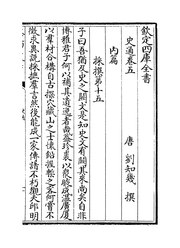 欽定四庫全書
史通卷五
唐 劉知幾 撰
內篇
採撰第十五
子曰吾猶及史之闕文是知史文有闕其來尚矣自非
博雅君子何以補其遺逸者哉蓋珍裘以衆腋成溫廣厦
以羣材合構自古探穴藏山之士懷鉛握槧之客何嘗不
徵求異說採摭羣言然後能成一家傳諸不朽觀夫丘明